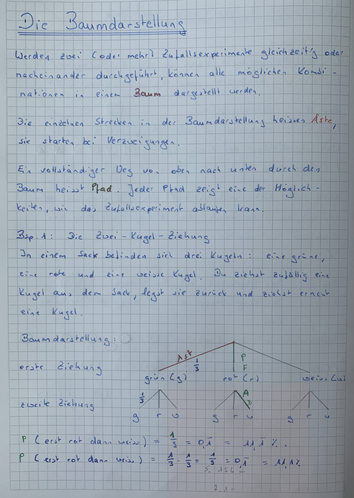 Die Baumdarstellung
Werden zwei (oder mehr) Zufallsexperimente gleichzeitig oder
nacheinander durchgeführt, können alle möglichen Kombi-
nationen in einem Baum dargestellt werden.
Die einzelnen Strecken in der Baumdarstellung heissen Äste,
sie starten bei Verzweigungen.
Ein vollständiger Weg von oben nach unten durch den
Baum heisst Pfad. Jeder Pfad zeigt eine der Möglich-
keiten, wie das Zufallsexperiment ablaufen kann.
Bsp. 1: Die Zwei-Kugel-Ziehung
In einem Sack befinden sich drei Kugeln: eine grüne,
eine rote und eine weisse Kugel. Du ziehst zufällig eine
Kugel aus dem Sack, legst sie zurück und ziehst erneut
eine Kugel.
Baumdarstellung:
Ast 1/3 P F A
erste Ziehung grün (g) rot (r) weiss (w)
1/3
zweite Ziehung g r w g r w g r w
P (erst rot dann weiss) = 1/9 = 0,1̅ = 11,1 %
P (erst rot dann weiss) = 1/3 · 1/3 = 0,1̅ = 11,1%